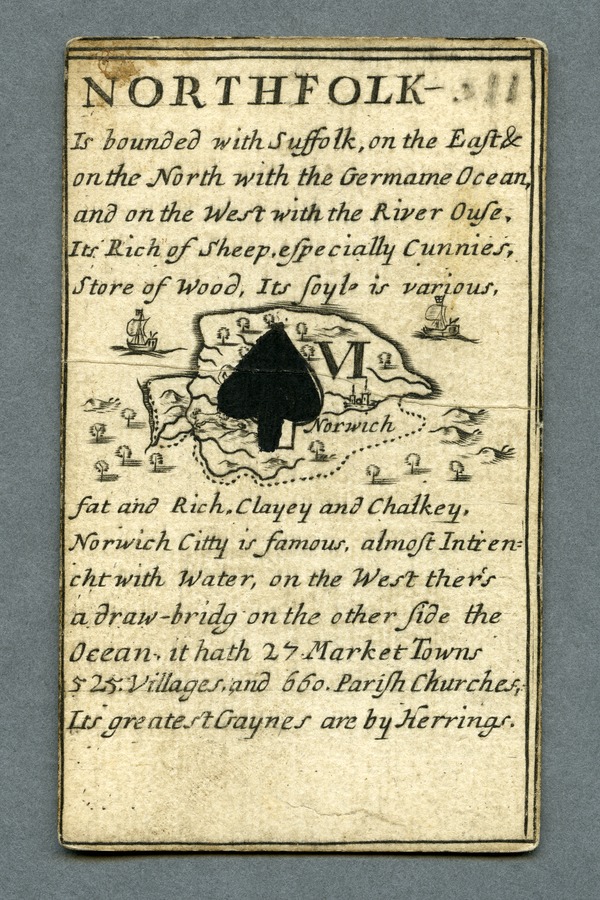 NORTHFOLK-
Is bounded with Suffolk, on the Eaſt &
on the North with the Germaine Ocean,
and on the West with the River Ouſe,
Its Rich of Sheep, eſpecially Cunnies,
Store of Wood, Its ſoyle is various,
VI
Norwich
fat and Rich, Clayey and Chalkey,
Norwich Citty is famous, almoſt Intren=
cht with Water, on the West ther's
a draw-bridg on the other ſide the
Ocean, it hath 27 Market Towns
525. Villages, and 660. Pariſh Churches,
Its greatest Gaynes are by Herrings.